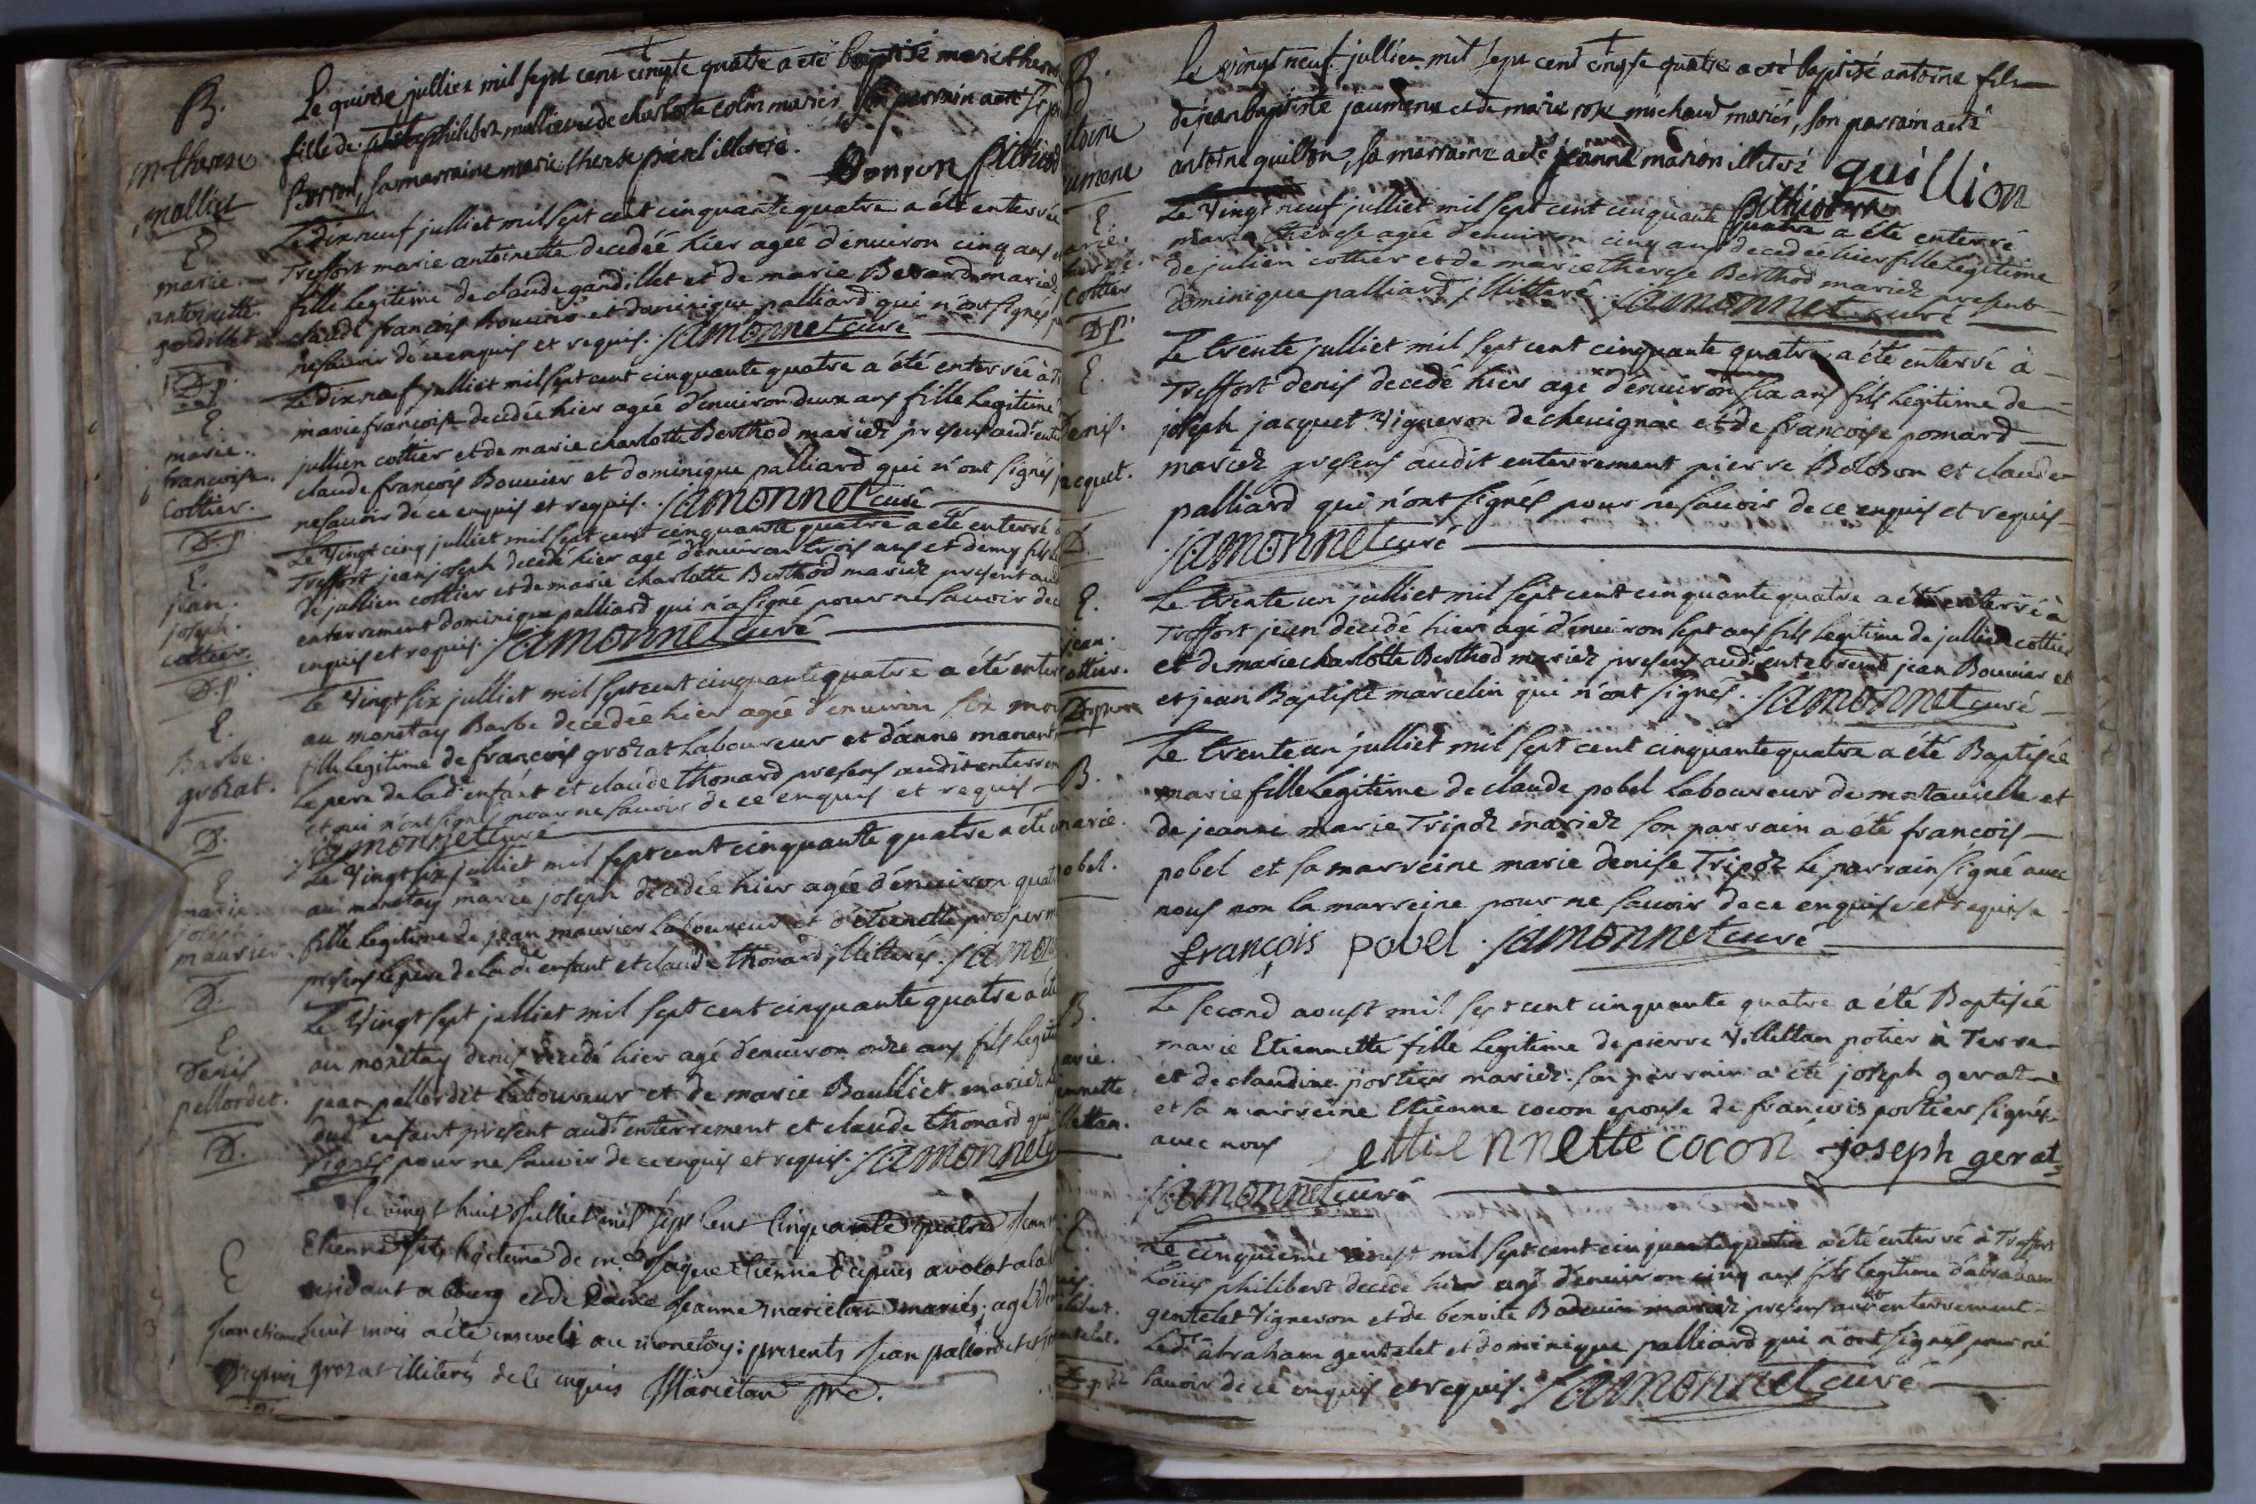 B.
m therese
mallier
Le quinze jullier mil sept cent cinqte quatre a eté baptisé marie there
fille de philiber mallier et de charlotte colin mariés son parrain a eté
Borron, sa marraine marie therese illiterée.
Borron pithiod
E.
marie
antoinette
gondillet
Le dix neuf julliet mil sept cent cinquante quatre a été enterrée
Treffort marie antoinette decedéé hier agéé d'enuiron cinq ans
fille legitime de claude gandillet et de marie Bessard mariez
claude françois Bouuier et dominique palliard qui n'ont signés
ne sauoir de ce enquis et requis. jamonnet curé
D.p.
E.
marie.
françoise.
Cottier.
Le dix neuf julliet mil sept cent cinquante quatre a été enterrée à
marie françoise decedée hier agée d'enuiron deux ans fille legitime
jullien cottier et de marie charlotte Berthod mariez presens aud. ente
claude françois Bouuier et dominique palliard qui n'ont signés
ne sauoir de ce enquis et requis. jamonnet curé
D.p.
E.
jean.
joseph.
cottier.
Le Vingt cinq julliet mil sept cent cinquante quatre a été enterré
Treffort jean joseph decedé hier agé d'enuiron trois ans et demy fils
de jullien cottier et de marie charlotte Berthod mariez present au
enterrement dominique palliard qui n'a signé pour ne sauoir de
enquis et requis. jamonnet curé
D.p.
E.
Barbe.
grozat.
Le Vingt six julliet mil sept cent cinquante quatre a été enter
au monetay Barbe decedée hier agée d'enuiron six moi
fille legitime de françois grozat laboureur et d'anne manant
le pere de lad. enfant et claude thonard presens audit enterrem
et qui n'ont signé pour ne sauoir de ce enquis et requis
jamonnet curé
D.
E.
marie
joseph
maurier.
Le Vingt six julliet mil sept cent cinquante quatre a été
au monetay marie joseph decedée hier agée d'enuiron quat
fille legitime de jean maurier laboureur et d'etiennette prosper
presens le pere de lad. enfant et claude thonard illitterés. jamon
D.
E.
Denis
pellordet.
Le Vingt sept julliet mil sept cent cinquante quatre a été
au monetay denis decedé hier agé d'enuiron onze ans fils legit
jean pellordet laboureur et de marie Baulliet mariez
dud. enfant present aud. enterrement et claude thonard qui
signés pour ne sauoir de ce enquis et requis. jamonnet c
D.
E
Jean etienne
Le vingt huit Julliet mil sept Cent Cinquante quatre Jean
Etienne fils legitime de mr. Jaque Etienne avocat a la
residant a bourg et de Dame Jeanne marietan mariés; agé
huit mois a été enseveli au monetay: presents Jean pallordet et
grozat illiterés de ce enquis Marietan pre.
B.
toine
umene
Le vingt neuf jullier mil sept cent cinqte quatre a eté baptisé antoine fils
de jean baptiste jaumene et de marie rose michaud mariés, son parrain a eté
antoine quillon, sa marraine a eté jeanne marion illiteré quillion
pithiod vre
E.
arie.
herese.
cottier
Le Vingt neuf julliet mil sept cent cinquante quatre a été enterré
marie therese agée d'enuiron cinq ans decedée hier fille legitime
de julien cottier et de marie therese Berthod mariez present
dominique palliard illitteré. jamonnet curé
D.p.
E.
Denis.
jacquet.
Le trente julliet mil sept cent cinquante quatre a été enterré à
Treffort denis decedé hier agé d'enuiron six ans fils legitime de
joseph jacquet Vigneron de cheuignac et de francoise pomard
mariez presens audit enterrement pierre Bolozon et claude
palliard qui n'ont signés pour ne sauoir de ce enquis et requis
jamonnet curé
D.
E.
jean.
cottier.
Le trente un julliet mil sept cent cinquante quatre a été enterré à
Treffort jean decedé hier agé d'enuiron sept ans fils legitime de jullien cottier
et de marie charlotte Berthod mariez presens aud. enterrement jean Bouuier et
et jean Baptiste marcelin qui n'ont signés. jamonnet curé
B.
marie.
pobel.
Le trente un julliet mil sept cent cinquante quatre a été Baptisée
marie fille legitime de claude pobel laboureur de montauielle et
de jeanne marie Tripoz mariez son parrain a été françois
pobel et sa marreine marie denise Tripoz le parrain signé auec
nous non la marreine pour ne sauoir de ce enquise et requise
françois pobel. jamonnet curé
B.
arie.
ennette
llettan.
Le second aoust mil sept cent cinquante quatre a été Baptisée
marie Etiennette fille legitime de pierre Villettan potier à Terre
et de claudine portier mariez. son parrain a été joseph gerat
et sa marreine Etienne cocon epouse de francois portier signés
auec nous ettiennette cocon joseph gerat
jamonnet curé
E.
uis.
ilibert.
entelet.
Le cinquieme aoust mil sept cent cinquante quatre a été enterré à Treffort
Loüis philibert decedé hier agé d'enuiron cinq ans fils legitime d'abraham
gentelet Vigneron et de benoite Baduin mariez presens audit enterrement
Ledt. abraham gentelet et dominique palliard qui n'ont signés pour ne
sauoir de ce enquis et requis. jamonnet curé